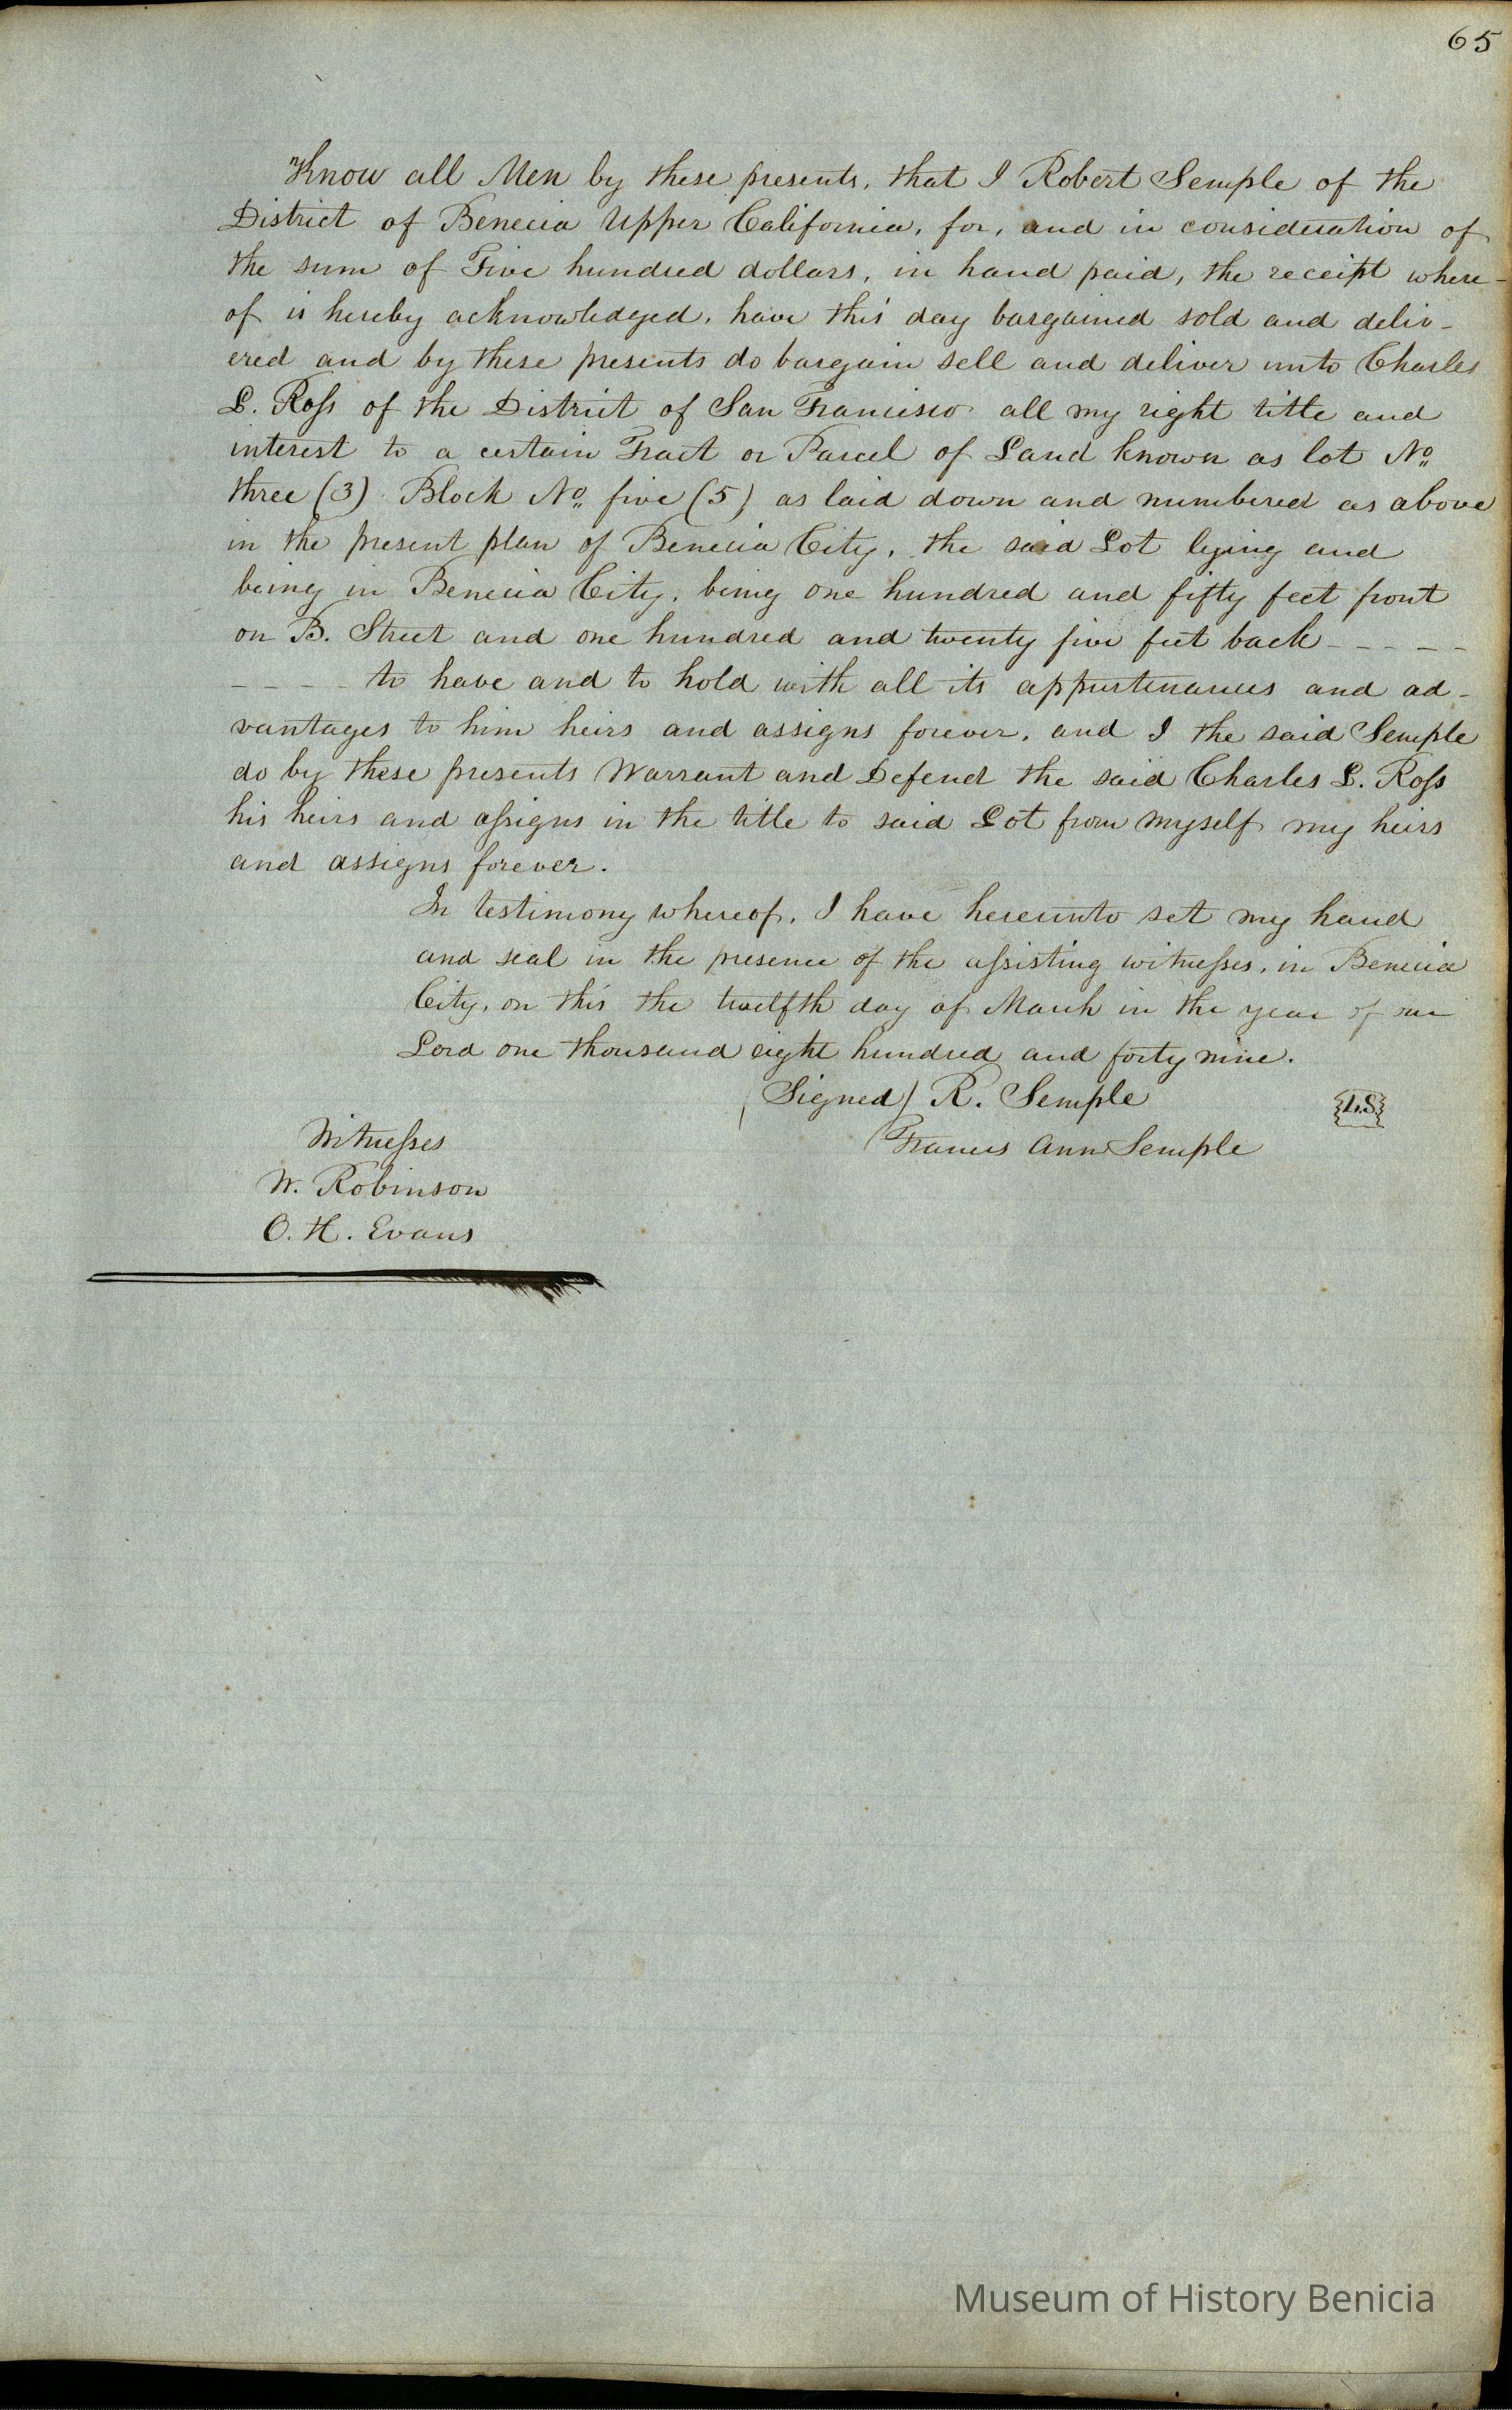 65
"Know all Men by these presents, that I Robert Semple of the
District of Benecia Upper California, for, and in consideration of
the sum of Five hundred dollars, in hand paid, the receipt where-
of is hereby acknowledged, have this day bargained sold and deliv-
ered and by these presents do bargain sell and deliver unto Charles
L. Roſs of the District of San Francisco all my right title and
interest to a certain Tract or Parcel of Land known as lot No.
three (3) Block No. five (5) as laid down and numbered as above
in the present plan of Benecia City, the said Lot lying and
being in Benecia City, being one hundred and fifty feet front
on B. Street and one hundred and twenty five feet back - - - - -
- - - - - to have and to hold with all its appurtenances and ad-
vantages to him heirs and assigns forever, and I the said Semple
do by these presents Warrant and Defend the said Charles L. Roſs
his heirs and aſsigns in the title to said Lot from myself my heirs
and assigns forever.
In testimony whereof, I have hereunto set my hand
and seal in the presence of the aſsisting witneſses, in Benecia
City, on this the twelfth day of March in the year of our
Lord one thousand eight hundred and forty nine.
(Signed) R. Semple L.S
Frances Ann Semple
Witneſses
W. Robinson
O. H. Evans
Museum of History Benicia